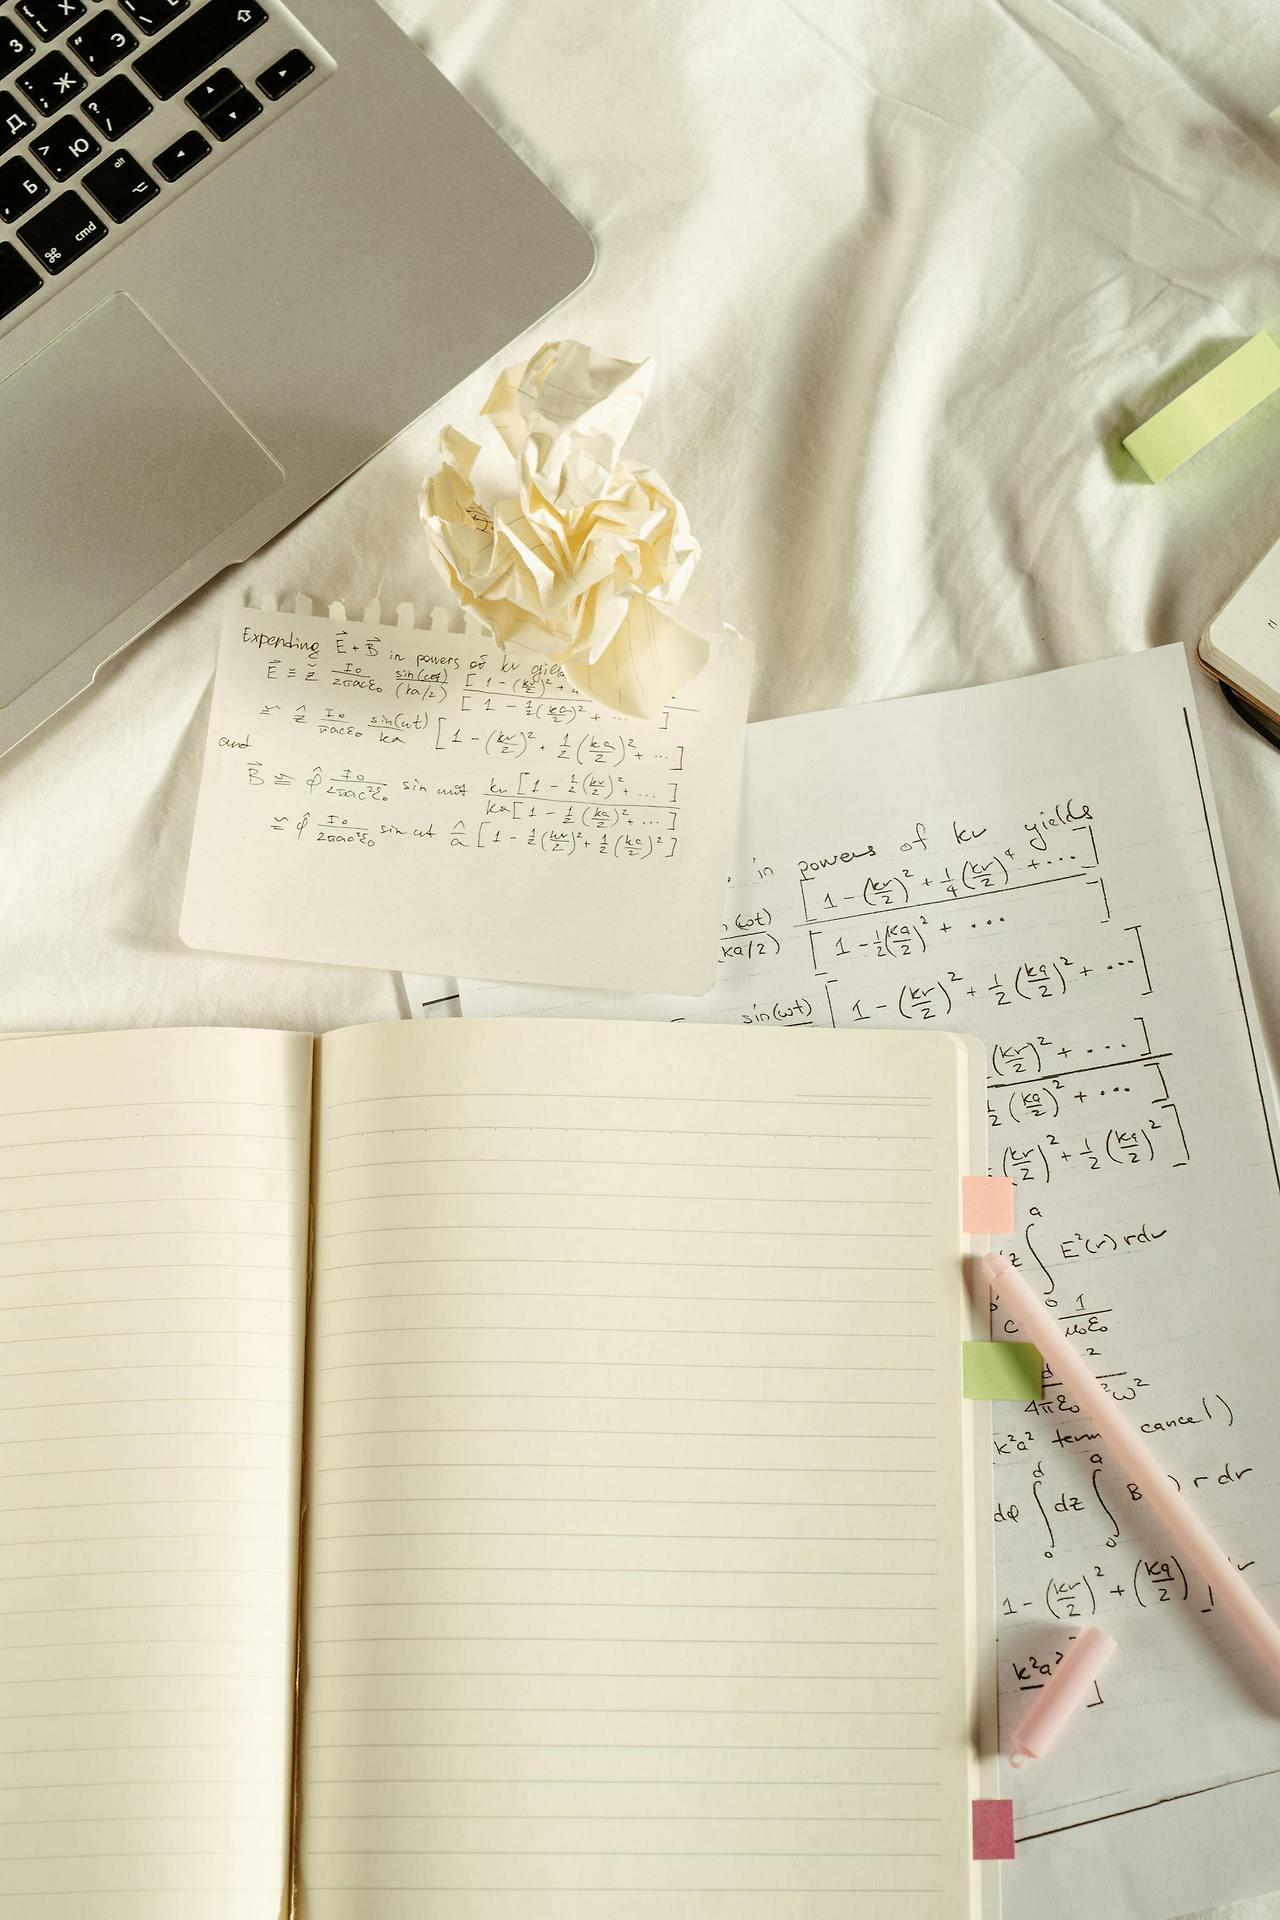 З Х Ї
Э
Ж
Д ?
> . Ю
Б alt
⌘ cmd
Expending E⃗ + B⃗ in powers of kr
E⃗ ≡ ẑ I₀/2πacε₀ sin(ωt)/(ka/2) [1 - (kr/2)² +
[1 - ½(ka/2)² + ... ]
≃ ẑ I₀/πacε₀ sin(ωt)/ka [1 - (kr/2)² + ½(ka/2)² + ... ]
and
B⃗ ≃ φ̂ I₀/2πac²ε₀ sin ωt kr[1 - ½(kr/2)² + ... ]/ka[1 - ½(ka/2)² + ... ]
≃ φ̂ I₀/2πac²ε₀ sin ωt [1 - ½(kr/2)² + ½(ka/2)²]
in powers of kr yields
[1 - (kr/2)² + ¼(kr/2)⁴ + ... ]
(ωt)/(ka/2) [1 - ½(ka/2)² + ...
sin(ωt) [1 - (kr/2)² + ½(ka/2)² + ... ]
(kr/2)² + ... ]
½(ka/2)² + ... ]
(kr/2)² + ½(ka/2)²]
z ∫₀ᵃ E²(r) r dr
c 1/μ₀ε₀
d 2
4πε₀ ²ω²
(k²a² term cancel)
dφ ∫₀ᵈ dz ∫₀ᵃ B ) r dr
1 - (kr/2)² + (ka/2) ] dr
k²a² ]